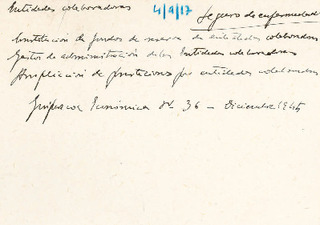 Entidades colaboradoras
4/9/17
Seguro de enfermedad
Constitución de fondos de reserva de entidades colaboradoras
Gastos de administración de las Entidades colaboradoras
Ampliación de prestaciones por entidades colaboradoras
Económica Nº 36 - Diciembre 1945